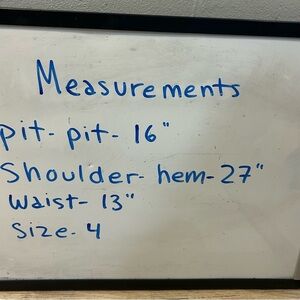 Measurements
pit-pit- 16"
Shoulder- hem- 27"
waist- 13"
Size- 4